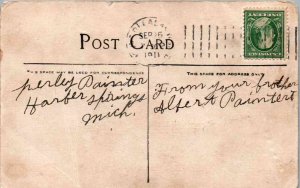 SEP 16
1911
ONE CENT
POST CARD
THIS SPACE MAY BE USED FOR CORRESPONDENCE
THIS SPACE FOR ADDRESS ONLY
perley Painter
Harbor Springs
Mich.
From your brother
Albert Painter